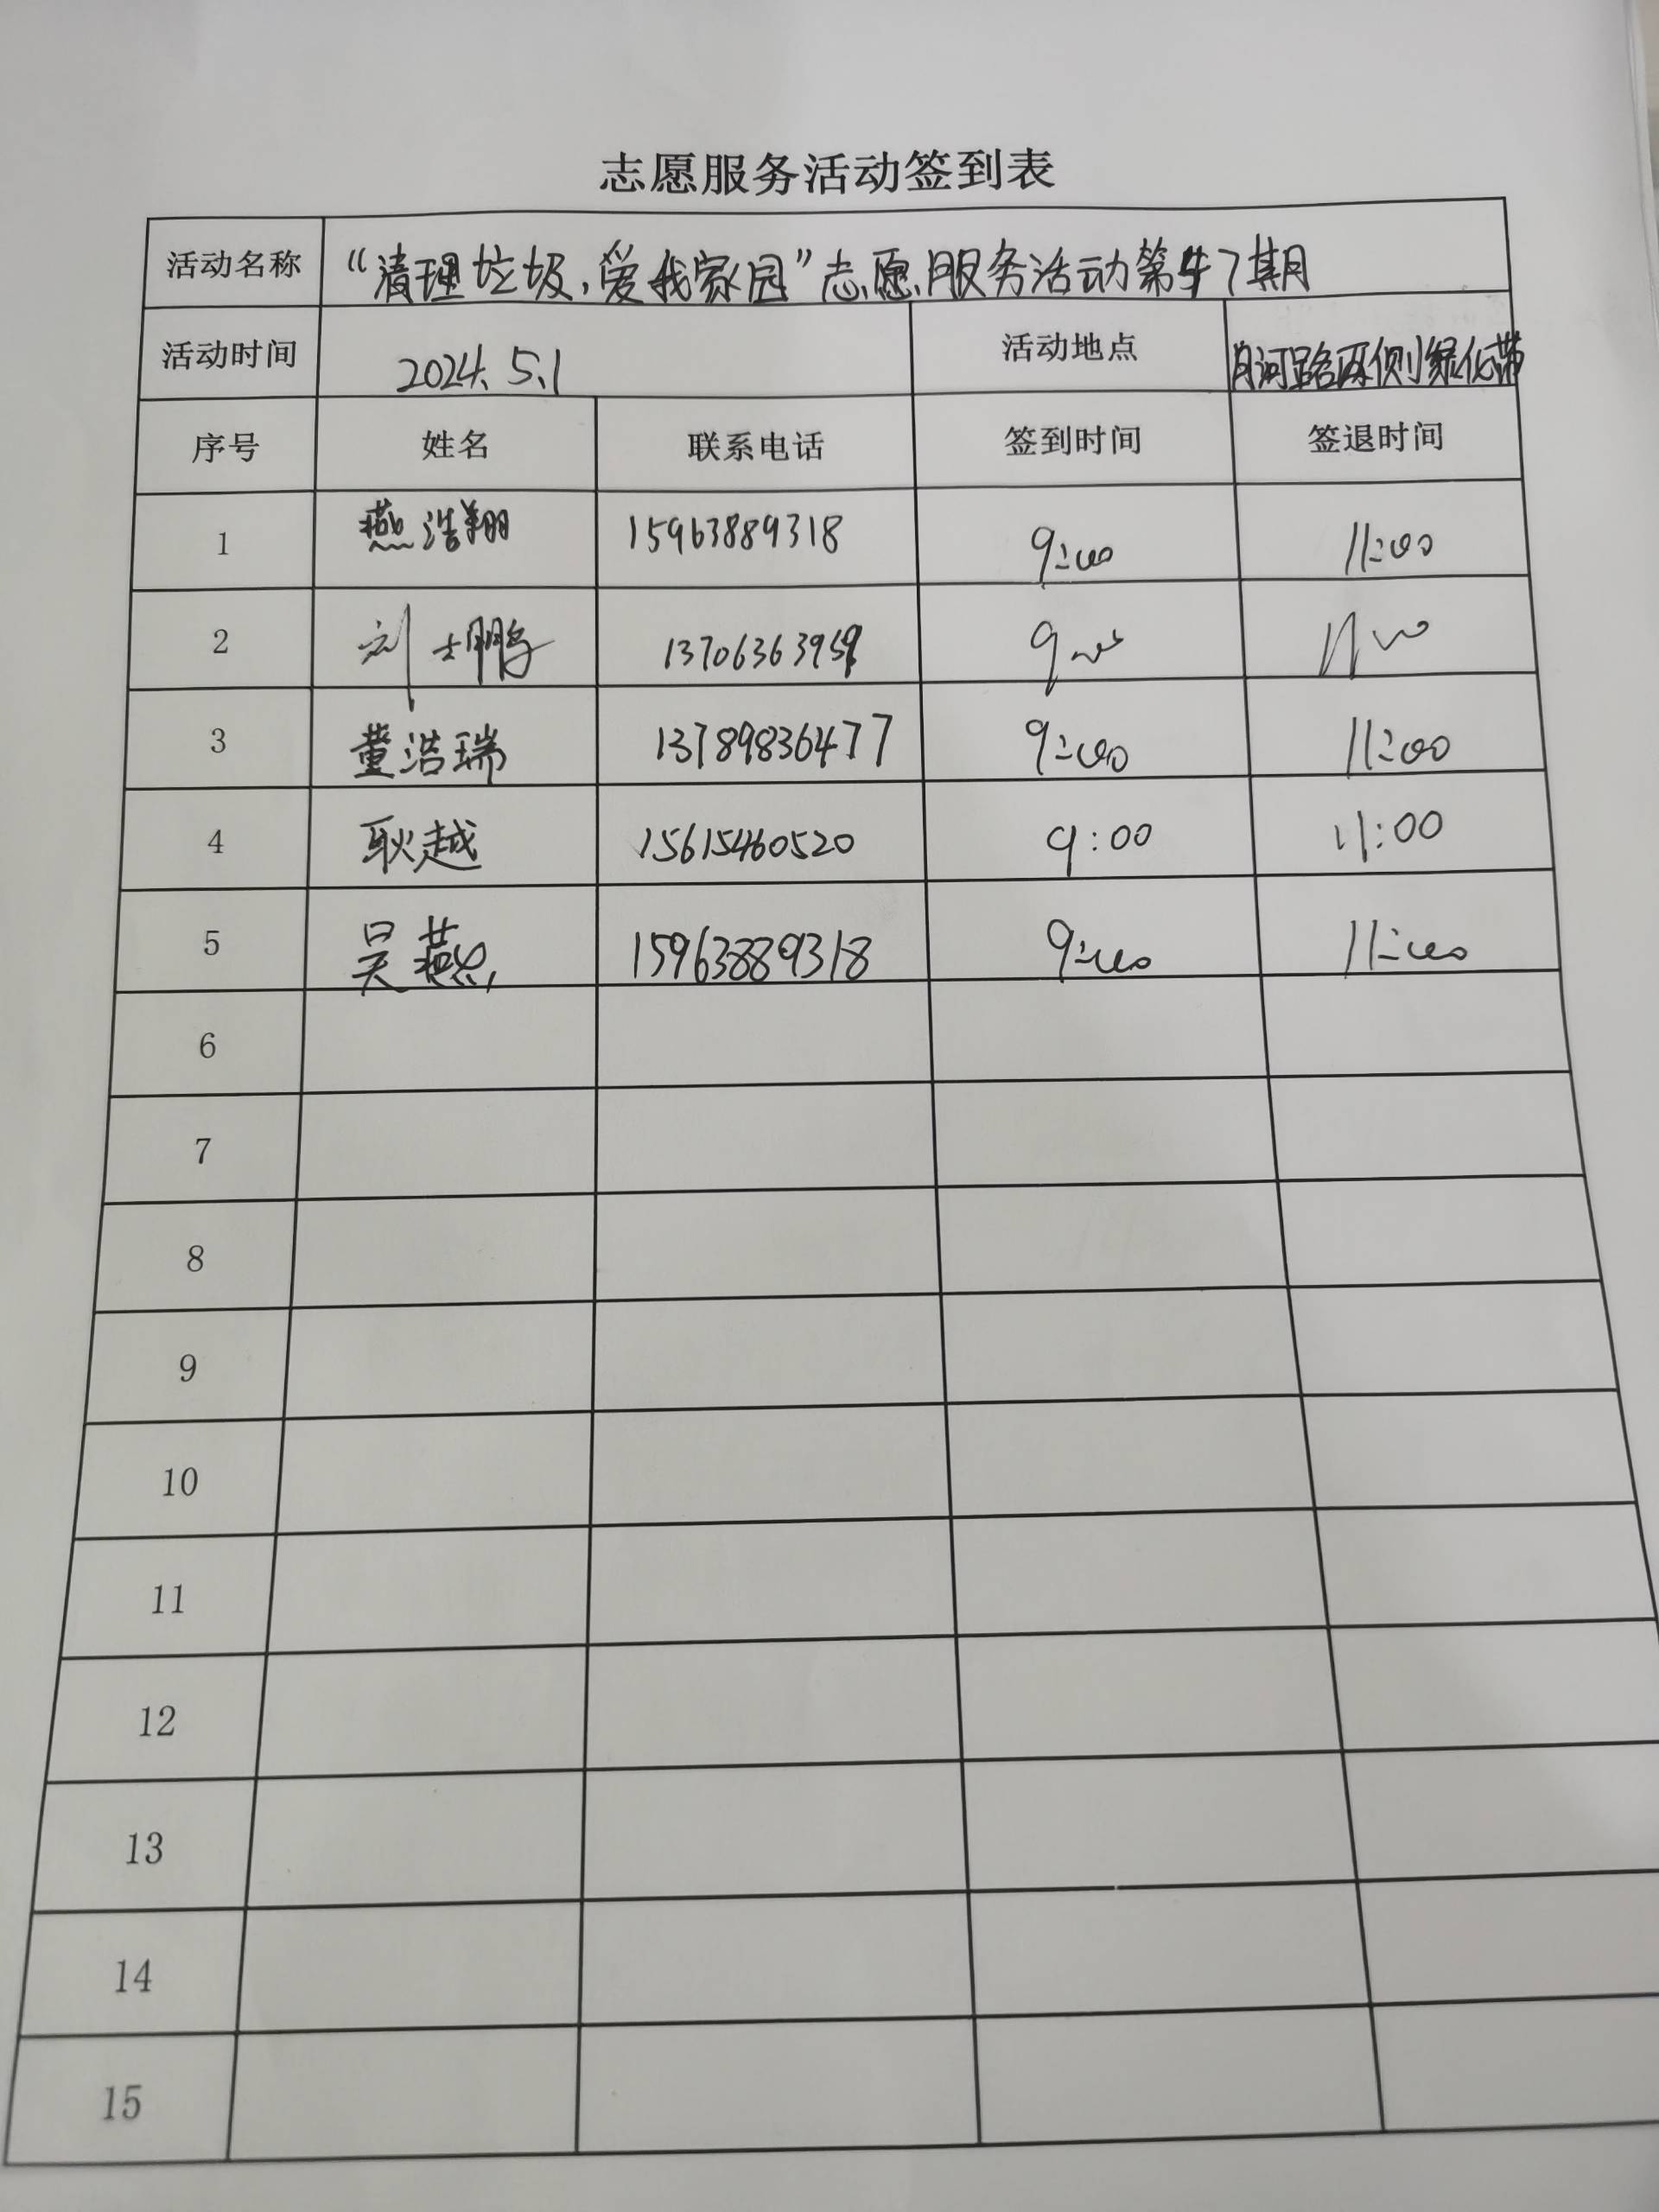 志愿服务活动签到表
活动名称 “清理垃圾,爱我家园”志愿服务活动第47期
活动时间 2024.5.1 活动地点 月河路两侧绿化带
序号 姓名 联系电话 签到时间 签退时间
1 燕浩翔 15963889318 9:00 11:00
2 刘士鹏 13706363959 9:00 11:00
3 董浩瑞 13789836477 9:00 11:00
4 耿越 15615460520 9:00 11:00
5 吴燕 15963889318 9:00 11:00
6
7
8
9
10
11
12
13
14
15